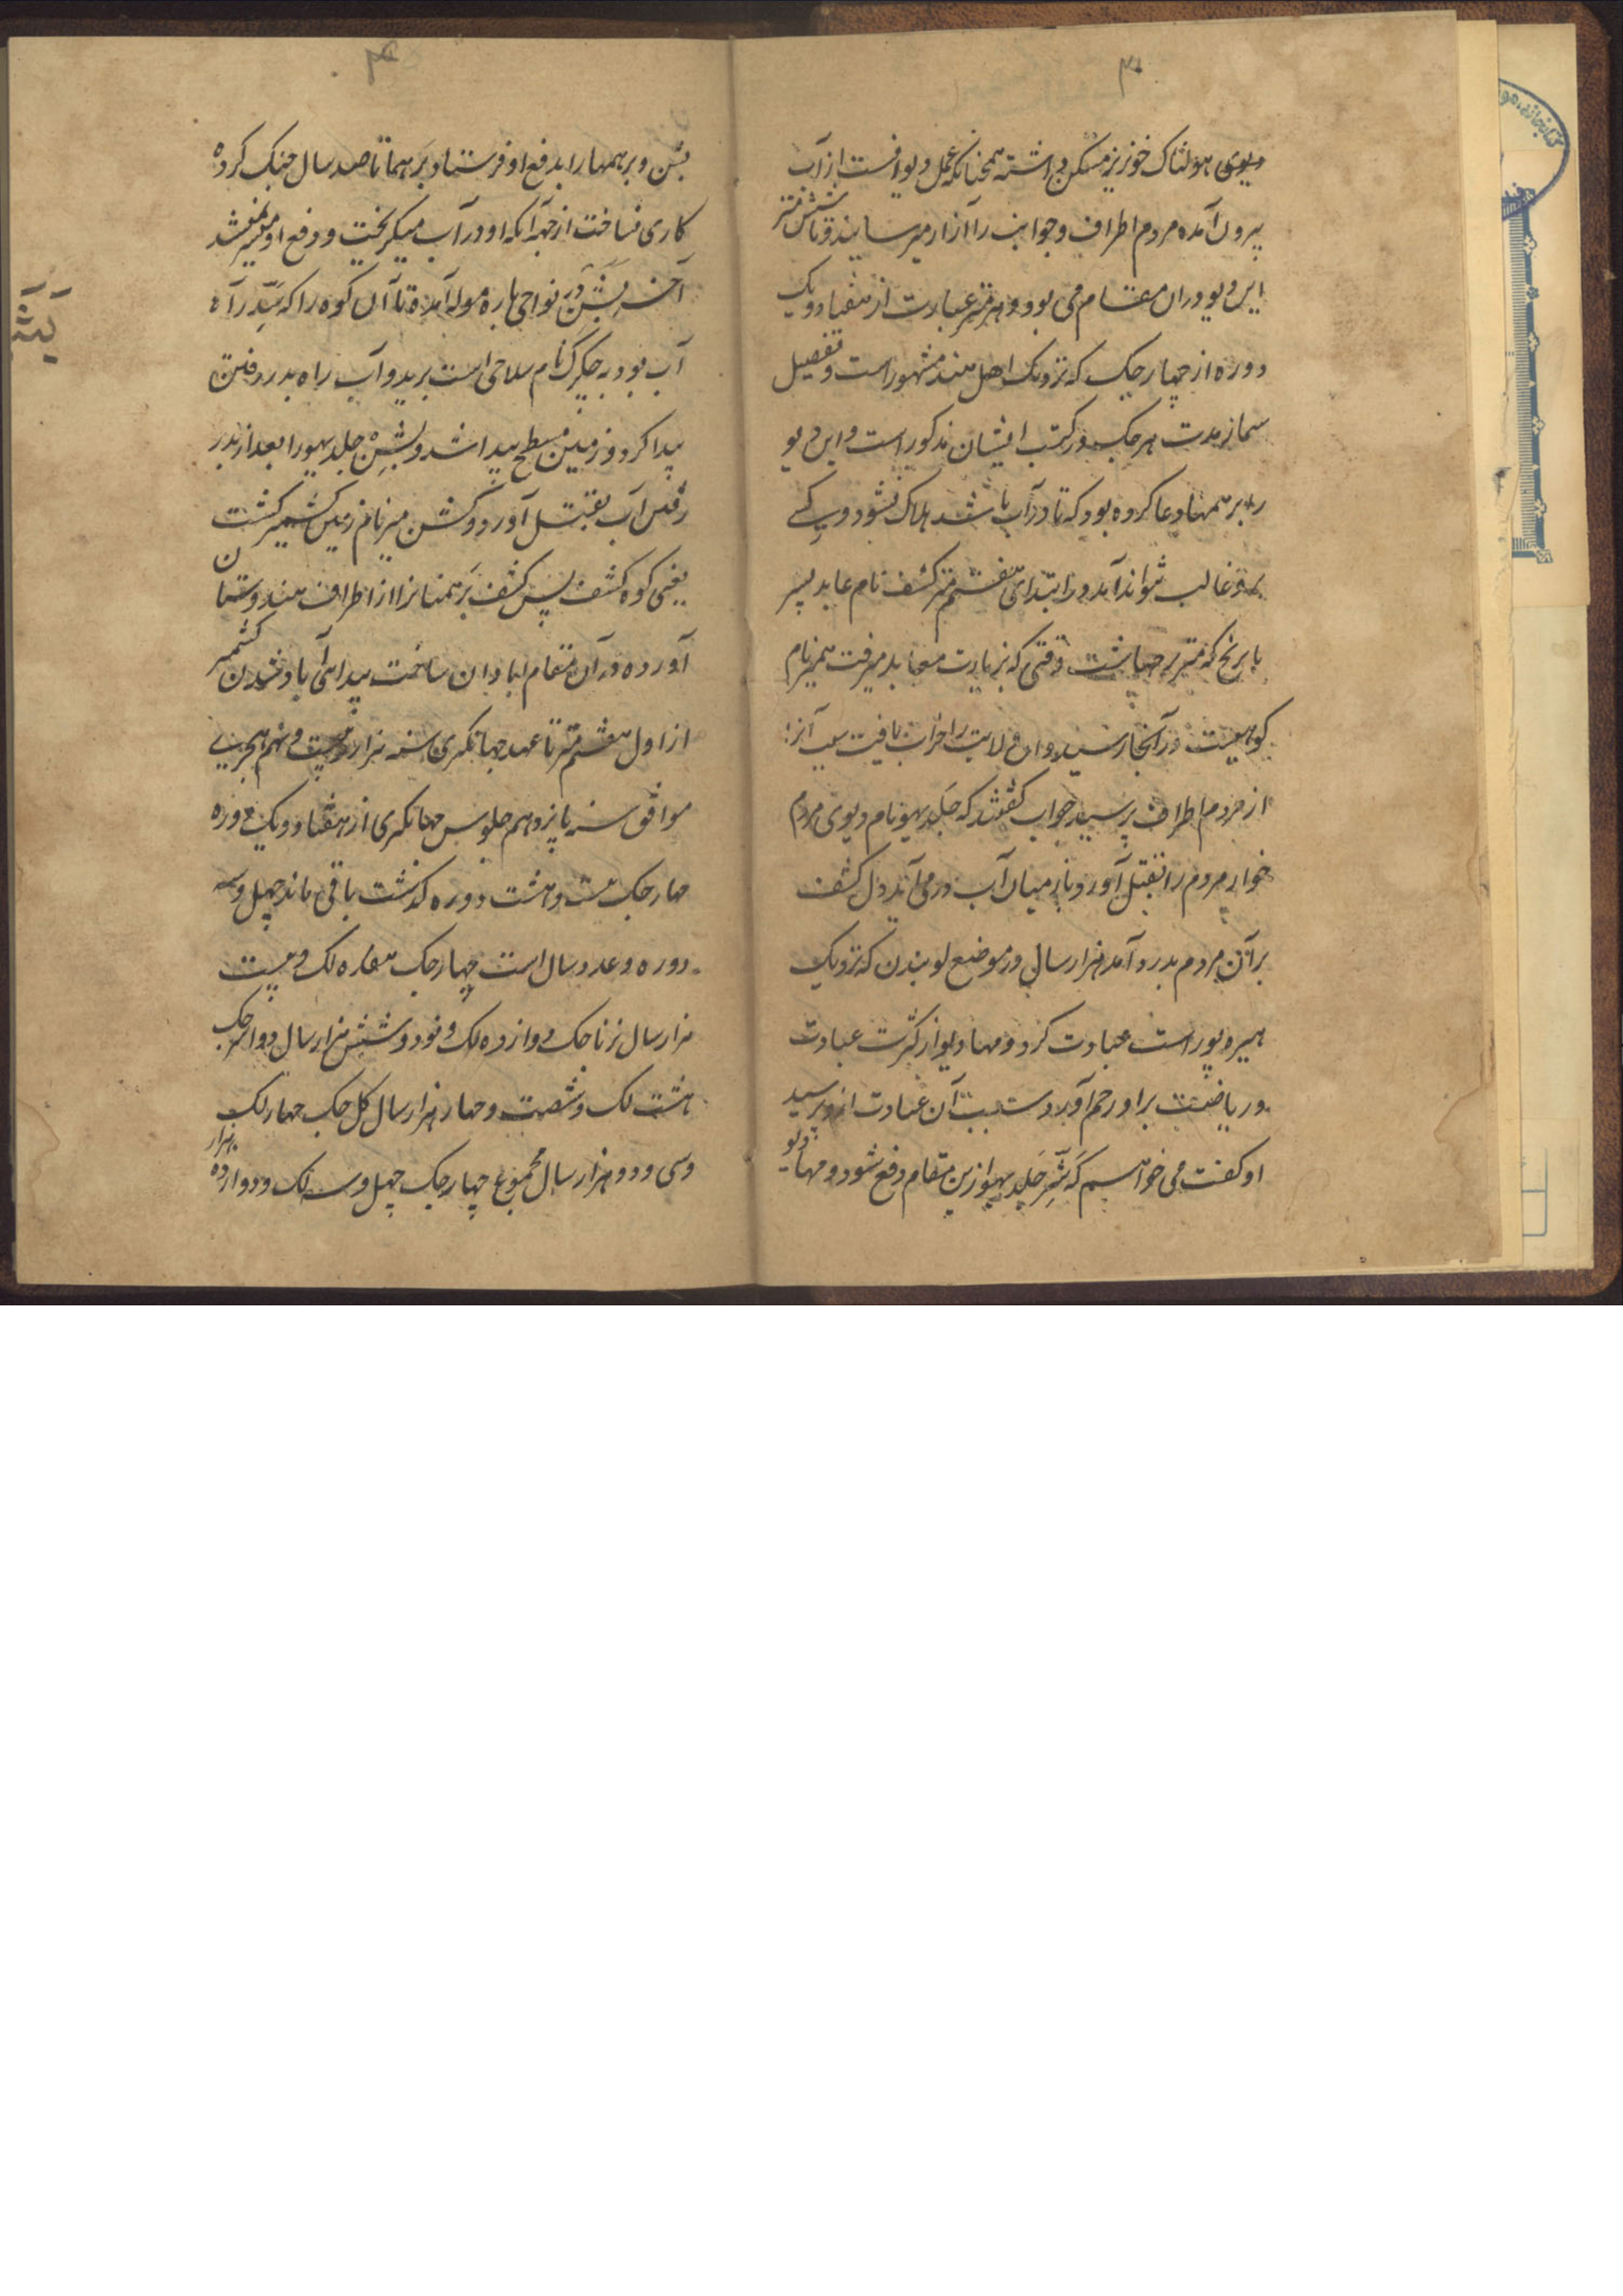 ۳
دیوی هولناک خونریز مسکن داشته همچنانکه عمل دیوانست از آب
بیرون آمده مردم اطراف و جوانب را آزار میرسانید و تا شش منتر
این دیو دران مقام می بود و هر منتر عبارت از هفتاد و یک
دوره از چهار جک که نزدیک اهل هند مشهور است و تفصیل
سماز مدت هر جک در کتب ایشان مذکور است و این دیو
را برهمها دعا کرده بود که تا در آب باشد هلاک نشود و کسے
برو غالب نتواند آمد در ابتدای هفتم منتر کشف نام عابد پسر
مریج که منیر برهما ست وقتی که بزیارت معابد میرفت بهمیر نام
کوهیست در آنجا رسید و ان ولایت را خراب یافت سبب آنرا
از مردم اطراف پرسید جواب گفتند که جلد بهیو نام دیوی مردم
خوار مردم را بقتل آورد و باز میان آب درمی آید دل کشف
بر آن مردم بدرد آمد هزار سال در موضع لوبندن که نزدیک
هیره پور است عبادت کرد و مهادیو از کثرت عبادت
و ریاضت بر او رحم آورد و سبب آن عبادت ازو پرسید
او کفت می خواهم که شر جلد بهیو ازین مقام دفع شود و مهادیو
۴
بشن و برهمها را بدفع او فرستاد و برهما تا صد سال جنک کرده
کاری نساخت از جهة آنکه او در آب میکریخت و دفع او میسر نمیشد
آخر بشن در نواحی باره موله آمده تا آن کوه را که سد راه
آب بود به چکر که نام سلاحی است برید و آب راه بدر رفتن
پیدا کرد و زمین مسطح پیدا شد و بشن جلد بهیو را بعد از بدر
رفتن آب بقتل آورد و کشن میر نام زمین کشمیر کشت
یعنی کوه کشف پس کشف برهمنانرا از اطراف هندوستان
آورده در آن مقام ابادان ساخت ابتدای آباد شدن کشمیر
از اول هفتم منتر تا عهد جهانکیری سنه هزار و بیست و نهم هجری
موافق سنه پانزدهم جلوس جهانکیری از هفتاد و یک دوره
چهار جک بیست و هشت دوره کذشت باقی ماند چهل و سه
دوره و عدد سال است چهار جک هفده لک و بیست
هزار سال ترتا جک دوازده لک و نود و شش هزار سال دواپر جک
هشت لک و شصت و چهار هزار سال کل جک چهار لک
و سی و دو هزار سال مجموع چهار جک چهل و سه لک و دوازده هزار